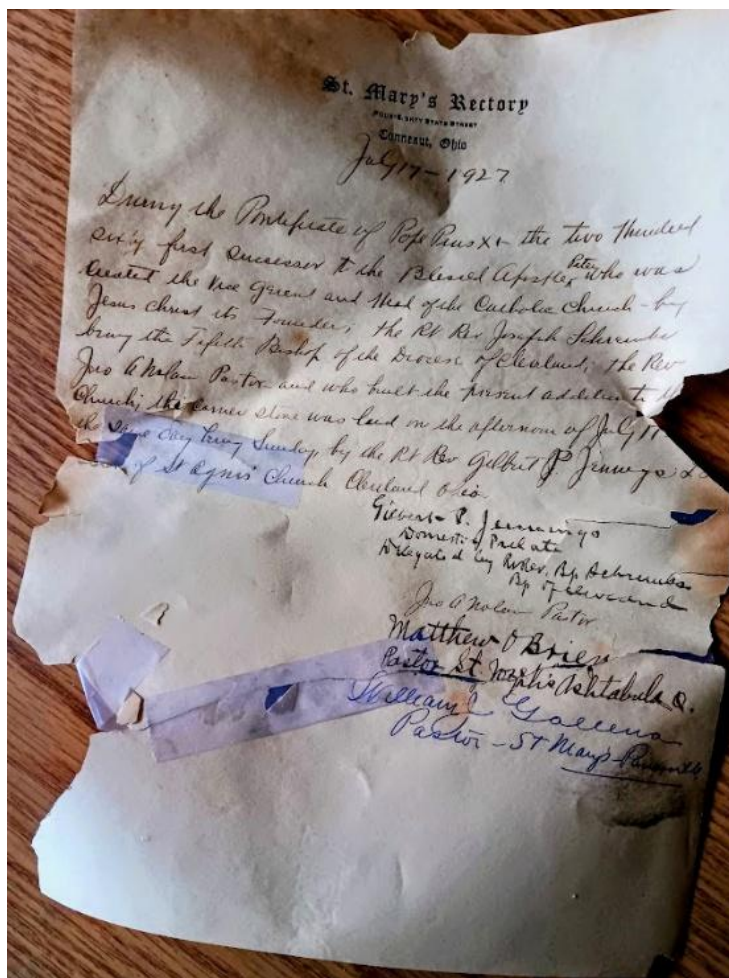 St. Mary's Rectory
State Street
Conneaut, Ohio
July 17 - 1927
During the Pontificate of Pope Pius XI the two Hundred
sixty first successor to the Blessed Apostle Peter who was
created the Vice Gerent and Head of the Catholic Church - by
Jesus Christ its Founder; the Rt Rev Joseph Schrembs
being the Fifth Bishop of the Diocese of Cleveland; the Rev
Jno A Nolan Pastor and who built the present addition to
Church; the corner stone was laid on the afternoon of July 17
the same day being Sunday, by the Rt Rev Gilbert P. Jennings
of St Agnes Church Cleveland Ohio.
Gilbert P. Jennings
Domestic Prelate
Delegated by Rt Rev. Bp Schrembs
Bp of Cleveland
Jno A Nolan Pastor
Matthew O'Brien
Pastor St. Joseph's Ashtabula O.
William
Pastor - St Mary's